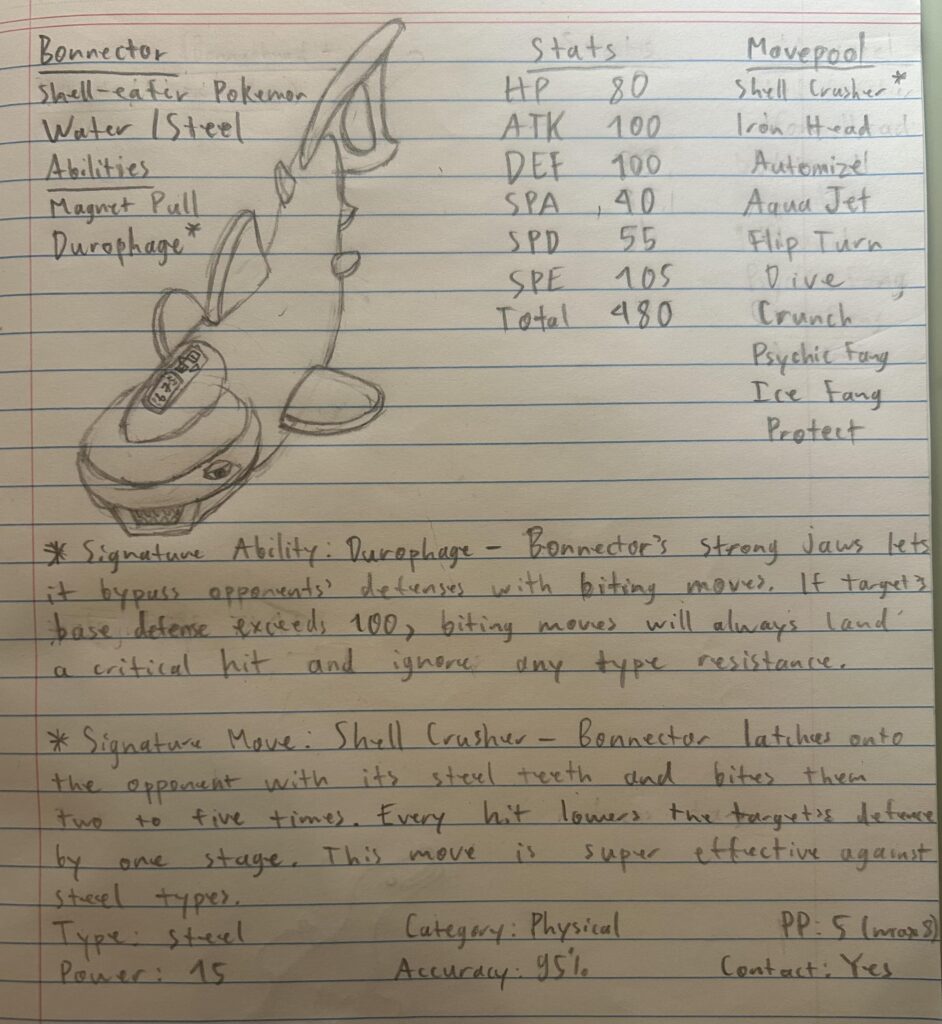 Bonnector
Shell-eatir Pokemon
Water / Steel
Abilities
Magnet Pull
Durophage*
Stats
HP 80
ATK 100
DEF 100
SPA 40
SPD 55
SPE 105
Total 480
Movepool
Shell Crusher*
Iron Head
Automize
Aqua Jet
Flip Turn
Dive
Crunch
Psychic Fang
Ice Fang
Protect
* Signature Ability: Durophage - Bonnector's strong jaws lets
it bypass opponents' defenses with biting moves. If target's
base defense exceeds 100, biting moves will always land
a critical hit and ignore any type resistance.
* Signature Move: Shell Crusher - Bonnector latches onto
the opponent with its steel teeth and bites them
two to five times. Every hit lowers the target's defence
by one stage. This move is super effective against
steel types.
Type: Steel Category: Physical PP: 5 (max 8)
Power: 15 Accuracy: 95% Contact: Yes